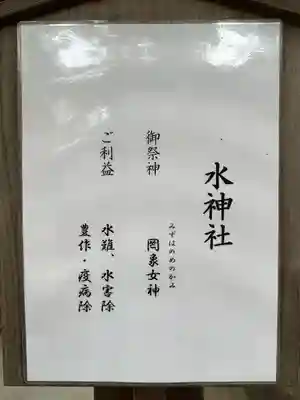 水神社
御祭神　岡象女神
みずはのめのかみ
ご利益　水難、水害除
豊作・疫病除